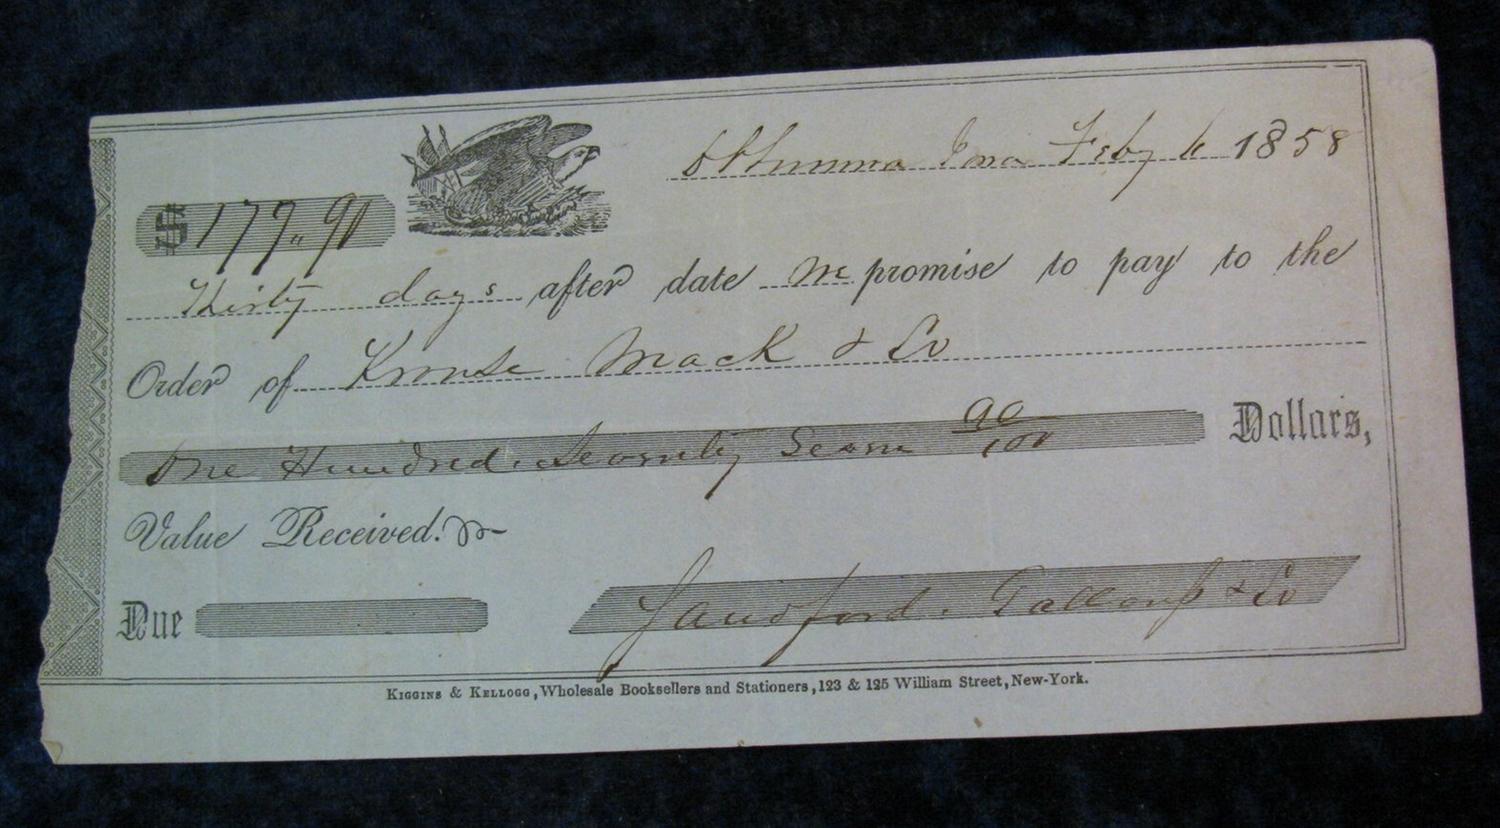 Ottumwa Iowa Feby 6 1858
$177.90
Thirty days after date we promise to pay to the
Order of Krouse Mack & Co
One Hundred Seventy Seven 90/100 Dollars,
Value Received.
Due Sandford. Galloup & Co
KIGGINS & KELLOGG, Wholesale Booksellers and Stationers, 123 & 125 William Street, New-York.